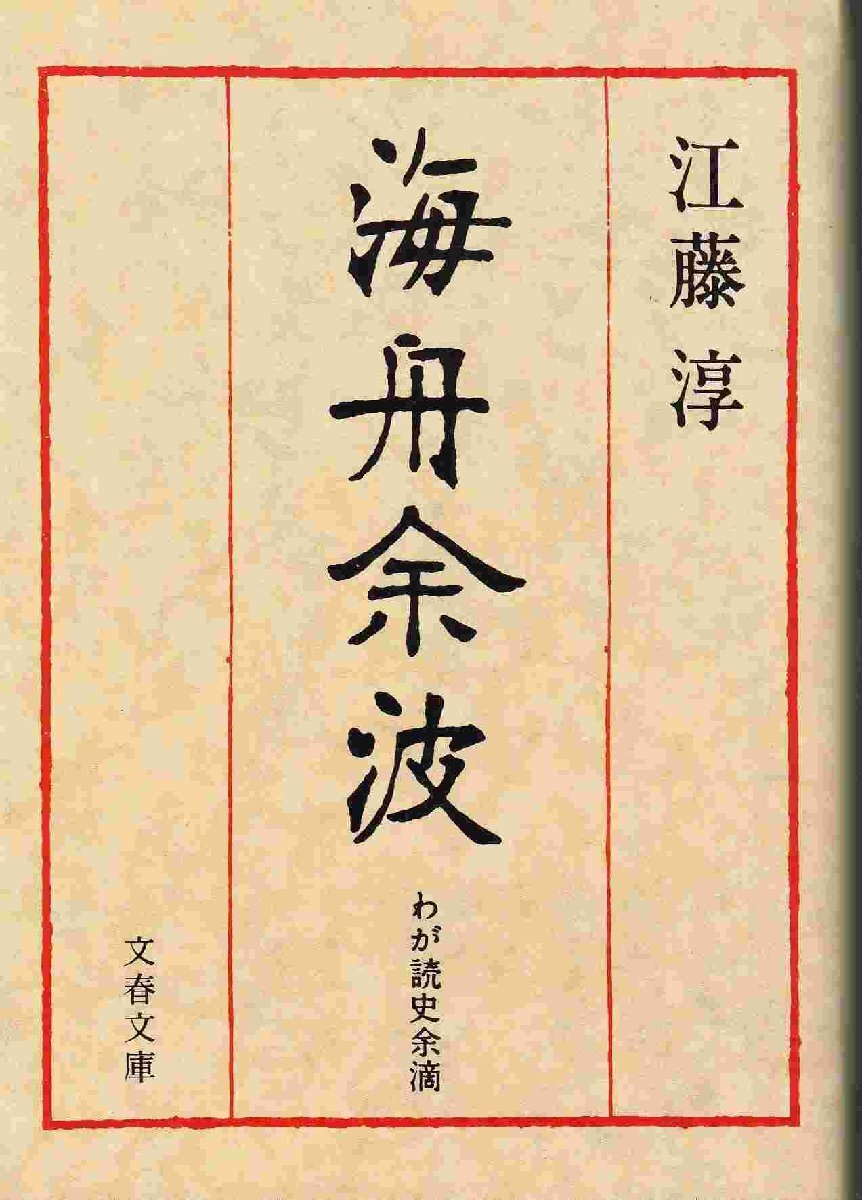 江藤 淳
海舟余波
わが読史余滴
文春文庫